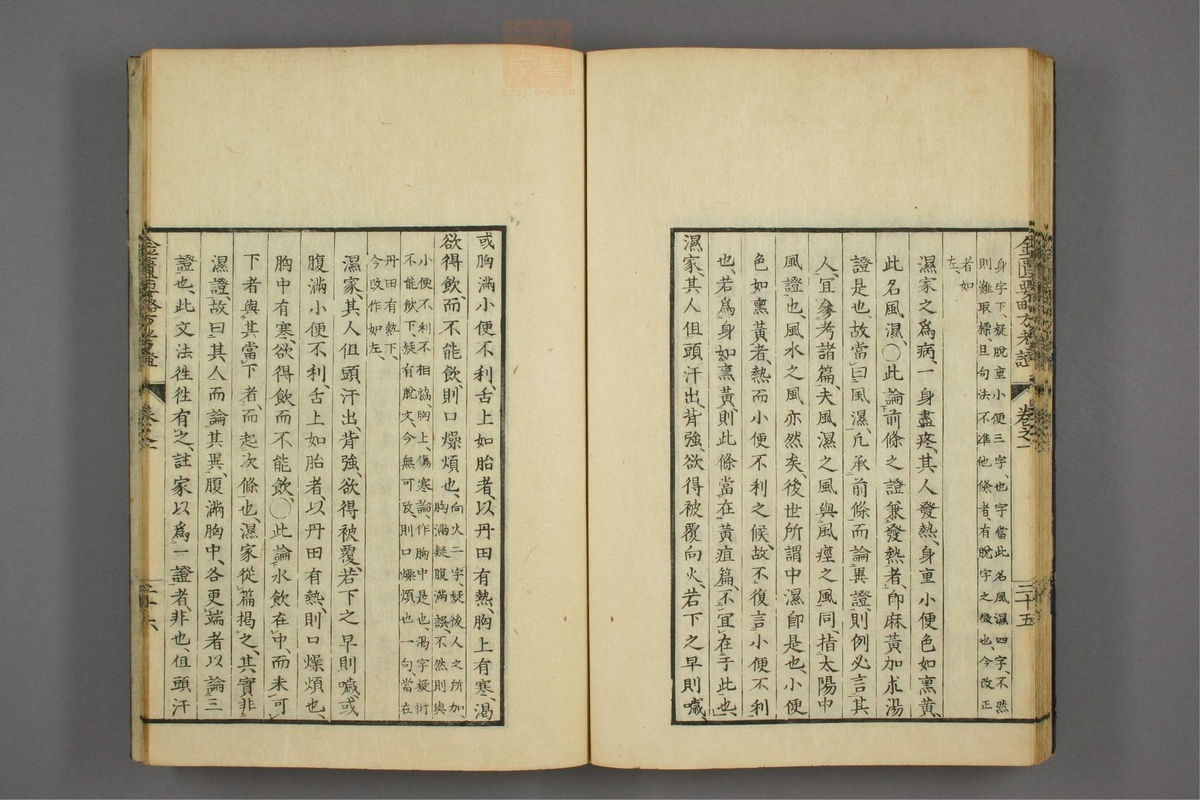 身字下、疑脫重小便三字、也字當此名風濕四字、不然
則難取標、且句法不准他條者、有脫字之徵也、今改正
者如
左、
濕家之爲病、一身盡疼、其人發熱、身重小便色如熏黃、
此名風濕、○此論前條之證兼發熱者、卽麻黃加朮湯
證是也、故當曰風濕、凡承前條而論異證、則例必言其
人、宜參考諸篇、夫風濕之風與風痙之風同、指太陽中
風證也、風水之風亦然矣、後世所謂中濕卽是也、小便
色如熏黃者、熱而小便不利之候、故不復言小便不利
也、若爲身如熏黃、則此條當在黃疸篇、不宜在于此也、
濕家、其人但頭汗出、背強、欲得被覆向火、若下之早則噦、
金匱要略方考證
卷之一
二十五
或胸滿小便不利、舌上如胎者、以丹田有熱、胸上有寒、渴
欲得飲、而不能飲、則口燥煩也、
向火二字、疑後人之所加、
胸滿疑腹滿誤、不然則與
小便不利不相協、胸上傷寒論作胸中是也、渴字疑衍
不能飲下、疑有脫文、今無可攷、則口燥煩也一句、當在
丹田有熱下、
今改作如左、
濕家、其人但頭汗出、背強、欲得被覆、若下之早則噦、或
腹滿小便不利、舌上如胎者、以丹田有熱、則口燥煩也、
胸中有寒、欲得飲而不能飲、○此論水飲在中、而未可
下者與其當下者、而起次條也、濕家從篇揭之、其實非
濕證、故曰其人而論其異、腹滿胸中、各更端者以論三
證也、此文法往往有之、註家以爲一證者、非也、但頭汗
金匱要略方考證
卷之一
二十六